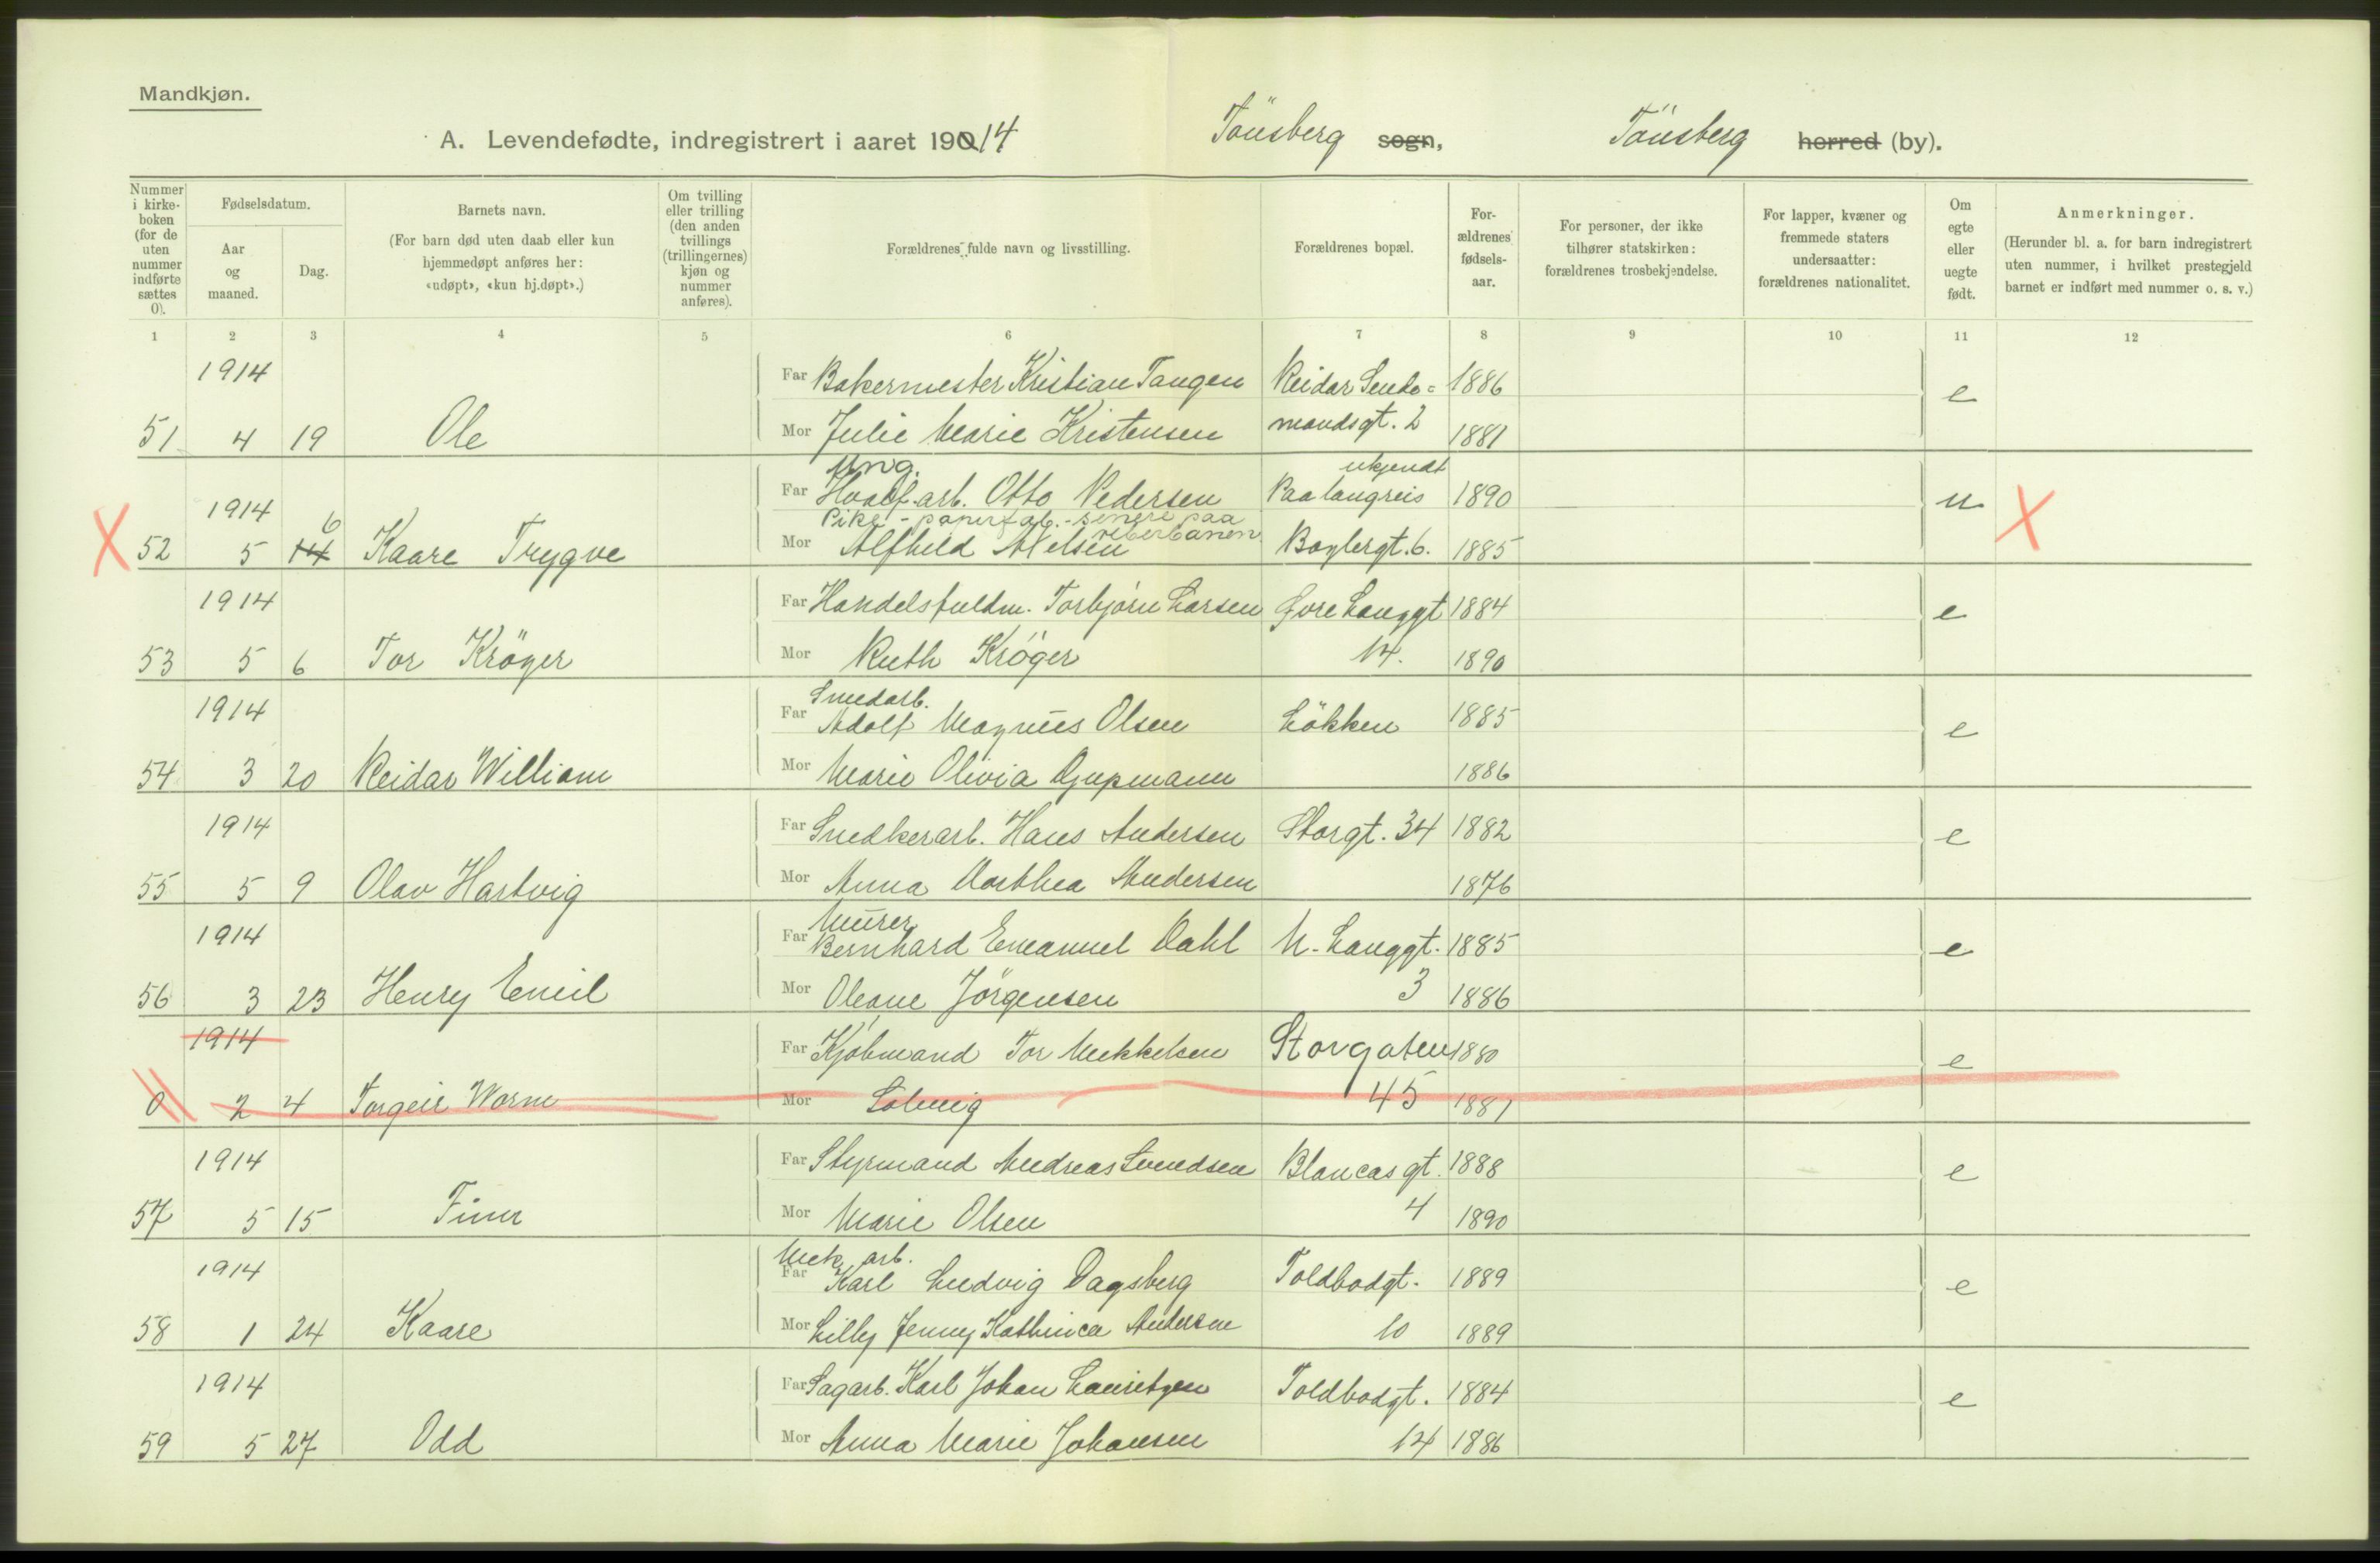 Mandkjøn.
A. Levendefødte, indregistrert i aaret 19014 Tönsberg sogn, Tönsberg herred (by).
Nummer i kirke-boken (for de uten nummer indførte sættes 0).
Fødselsdatum.
Aar og maaned.
Dag.
Barnets navn.
(For barn død uten daab eller kun hjemmedøpt anføres her: «udøpt», «kun hj.døpt».)
Om tvilling eller trilling (den anden tvillings (trillingernes) kjøn og nummer anføres).
Forældrenes fulde navn og livsstilling.
Forældrenes bopæl.
For-ældrenes fødsels-aar.
For personer, der ikke tilhører statskirken: forældrenes trosbekjendelse.
For lapper, kvæner og fremmede staters undersaatter: forældrenes nationalitet.
Om egte eller uegte født.
Anmerkninger.
(Herunder bl. a. for barn indregistrert uten nummer, i hvilket prestegjeld barnet er indført med nummer o. s. v.)
1 2 3 4 5 6 7 8 9 10 11 12
1914 Far Bakermester Kristian Tangen Reidar Sende= 1886 e
51 4 19 Ole Mor Julie Marie Kristensen mandsgt. 2 1881
Ung. ukjendt
1914 Far Hvalf.arb. Otto Pedersen Paa langreis 1890 u X
Pike - papirfab. - senere paa reberbanen
X 52 5 14 6 Kaare Trygve Mor Alfhild Nielsen Baglergt. 6. 1885
1914 Far Handelsfuldm. Torbjørn Larsen Øvre Langgt 1884 e
53 5 6 Tor Kröger Mor Ruth Kröger 14. 1890
Smedarb.
1914 Far Adolf Magnus Olsen Lökken 1885 e
54 3 20 Reidar William Mor Marie Olivia Djupmann 1886
1914 Far Snedkerarb. Hans Andersen Storgt. 34 1882 e
55 5 9 Olav Hartvig Mor Anna Dorthea Andersen 1876
Murer
1914 Far Bernhard Emanuel Dahl N. Langgt. 1885 e
56 3 23 Henry Emil Mor Oleane Jörgensen 3 1886
1914 Far Kjöbmand Tor Mekkelsen Storgaten 1880 e
0 2 4 Torgeir Worm Mor Solveig 45 1881
1914 Far Styrmand Andreas Svendsen Blancasgt. 1888 e
57 5 15 Finn Mor Marie Olsen 4 1890
Mek. arb.
1914 Far Karl Ludvig Dagsberg Toldbodgt. 1889 e
58 1 24 Kaare Mor Lilly Jenny Kathinca Andersen 10 1889
1914 Far Sagarb. Karl Johan Lauritzen Toldbodgt. 1884 e
59 5 27 Odd Mor Anna Marie Johansen 14 1886